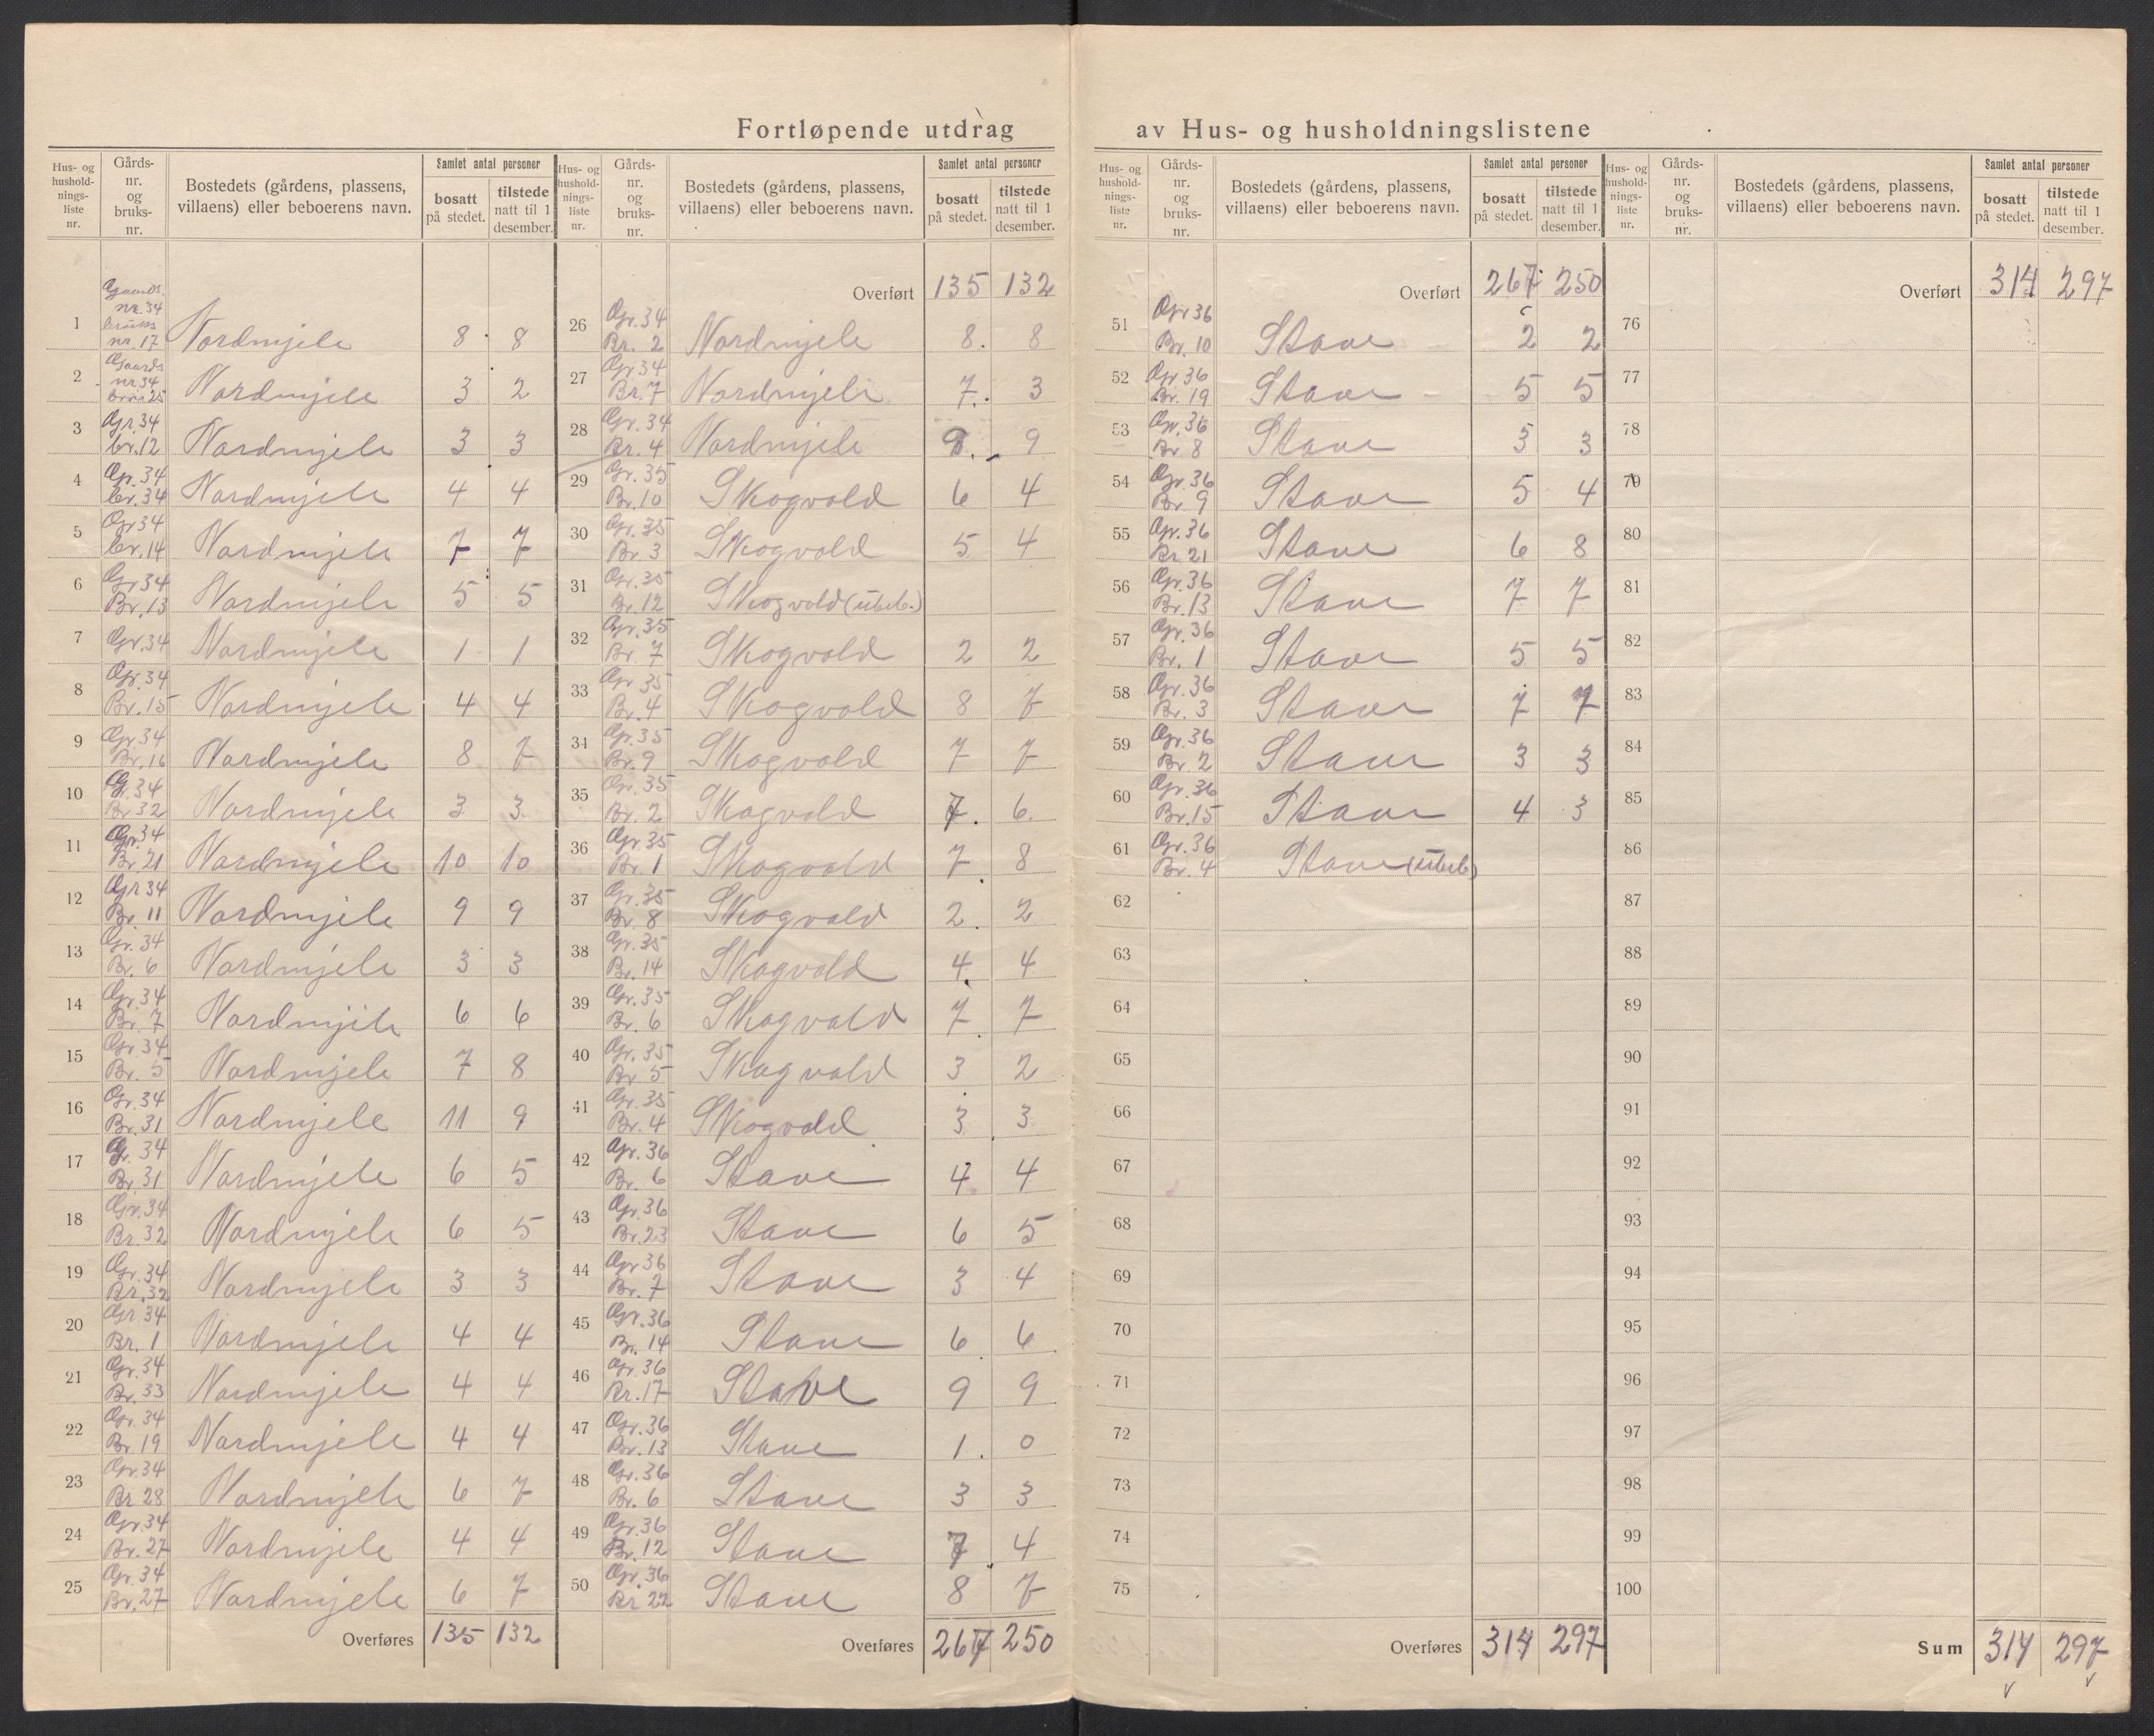 Fortløpende utdrag av Hus- og husholdningslistene
Hus- og husholdnings-liste nr. Gårds-nr. og bruks-nr. Bostedets (gårdens, plassens, villaens) eller beboerens navn. Samlet antal personer bosatt på stedet. tilstede natt til 1 desember.
1 Gaards nr. 34 bruks nr. 17 Nordmjele 8 8
2 Gaards nr. 34 Nordmjele 3 2
3 Gr. 34 br. 12 Nordmjele 3 3
4 Gr. 34 br. 34 Nordmjele 4 4
5 Gr 34 br. 14 Nordmjele 7 7
6 Gr 34 Br. 13 Nordmjele 5 5
7 Gr. 34 Nordmjele 1 1
8 Gr. 34 Br. 15 Nordmjele 4 4
9 Gr. 34 Br. 16 Nordmjele 8 7
10 Gr. 34 Br 32 Nordmjele 3 3
11 Gr. 34 Br. 21 Nordmjele 10 10
12 Gr 34 Br. 11 Nordmjele 9 9
13 Gr. 34 Br. 6 Nordmjele 3 3
14 Gr. 34 Br. 7 Nordmjele 6 6
15 Gr. 34 Br. 5 Nordmjele 7 8
16 Gr. 34 Br. 31 Nordmjele 11 9
17 Gr. 34 Br. 31 Nordmjele 6 5
18 Gr. 34 Br. 32 Nordmjele 6 5
19 Gr. 34 Br. 32 Nordmjele 3 3
20 Gr. 34 Br. 1 Nordmjele 4 4
21 Gr. 34 Br. 33 Nordmjele 4 4
22 Gr. 34 Br 19 Nordmjele 4 4
23 Gr. 34 Br 28 Nordmjele 6 7
24 Gr. 34 Br. 27 Nordmjele 4 4
25 Gr. 34 Br. 27 Nordmjele 6 7
Overføres 135 132
Hus- og husholdnings-liste nr. Gårds-nr. og bruks-nr. Bostedets (gårdens, plassens, villaens) eller beboerens navn. Samlet antal personer bosatt på stedet. tilstede natt til 1 desember.
Overført 135 132
26 Gr. 34 Br. 2 Nordmjele 8. 8
27 Gr. 34 Br. 7 Nordmjele 7. 3
28 Gr. 34 Br. 4 Nordmjele 9. 9
29 Gr. 35 Br. 10 Skogvold 6 4
30 Gr. 35 Br. 3 Skogvold 5 4
31 Gr. 35 Br. 12 Skogvold (ubeb.)
32 Gr. 35 Br. 7 Skogvold 2 2
33 Gr. 35 Br. 4 Skogvold 8 7
34 Gr. 35 Br. 9 Skogvold 7 7
35 Gr. 35 Br. 2 Skogvold 7. 6
36 Gr. 35 Br 1 Skogvold 7. 8
37 Gr. 35 Br. 8 Skogvold 2. 2
38 Gr. 35 Br. 14 Skogvold 4. 4
39 Gr. 35 Br. 6 Skogvold 7. 7
40 Gr. 35 Br 5 Skogvold 3 2
41 Gr. 35 Br. 4 Skogvold 3 3
42 Gr. 36 Br. 6 Stave 4 4
43 Gr. 36 Br. 23 Stave 6 5
44 Gr 36 Br. 7 Stave 3 4
45 Gr. 36 Br. 14 Stave 6. 6
46 Gr. 36 Br. 17 Stave 9 9
47 Gr. 36 Br. 13 Stave 1. 0
48 Gr. 36 Br. 6 Stave 3 3
49 Gr. 36 Br. 12 Stave 7. 4
50 Gr. 36 Br 22 Stave 8 7
Overføres 267 250
Hus- og husholdnings-liste nr. Gårds-nr. og bruks-nr. Bostedets (gårdens, plassens, villaens) eller beboerens navn. Samlet antal personer bosatt på stedet. tilstede natt til 1 desember.
Overført 267 250
51 Gr 36 Br. 10 Stave 2 2
52 Gr. 36 Br. 19 Stave 5 5
53 Gr. 36 Br 8 Stave 3 3
54 Gr. 36 Br 9 Stave 5 4
55 Gr. 36 Br 21 Stave 6 8
56 Gr. 36 Br. 13 Stave 7 7
57 Gr. 36 Br. 1 Stave 5 5
58 Gr. 36 Br. 3 Stave 7 7
59 Gr. 36 Br 2 Stave 3 3
60 Gr. 36 Br. 15 Stave 4 3
61 Gr. 36 Br. 4 Stave (ubeb)
62
63
64
65
66
67
68
69
70
71
72
73
74
75
Overføres 314 297
Hus- og husholdnings-liste nr. Gårds-nr. og bruks-nr. Bostedets (gårdens, plassens, villaens) eller beboerens navn. Samlet antal personer bosatt på stedet. tilstede natt til 1 desember.
Overført 314 297
76
77
78
79
80
81
82
83
84
85
86
87
88
89
90
91
92
93
94
95
96
97
98
99
100
Sum 314 297